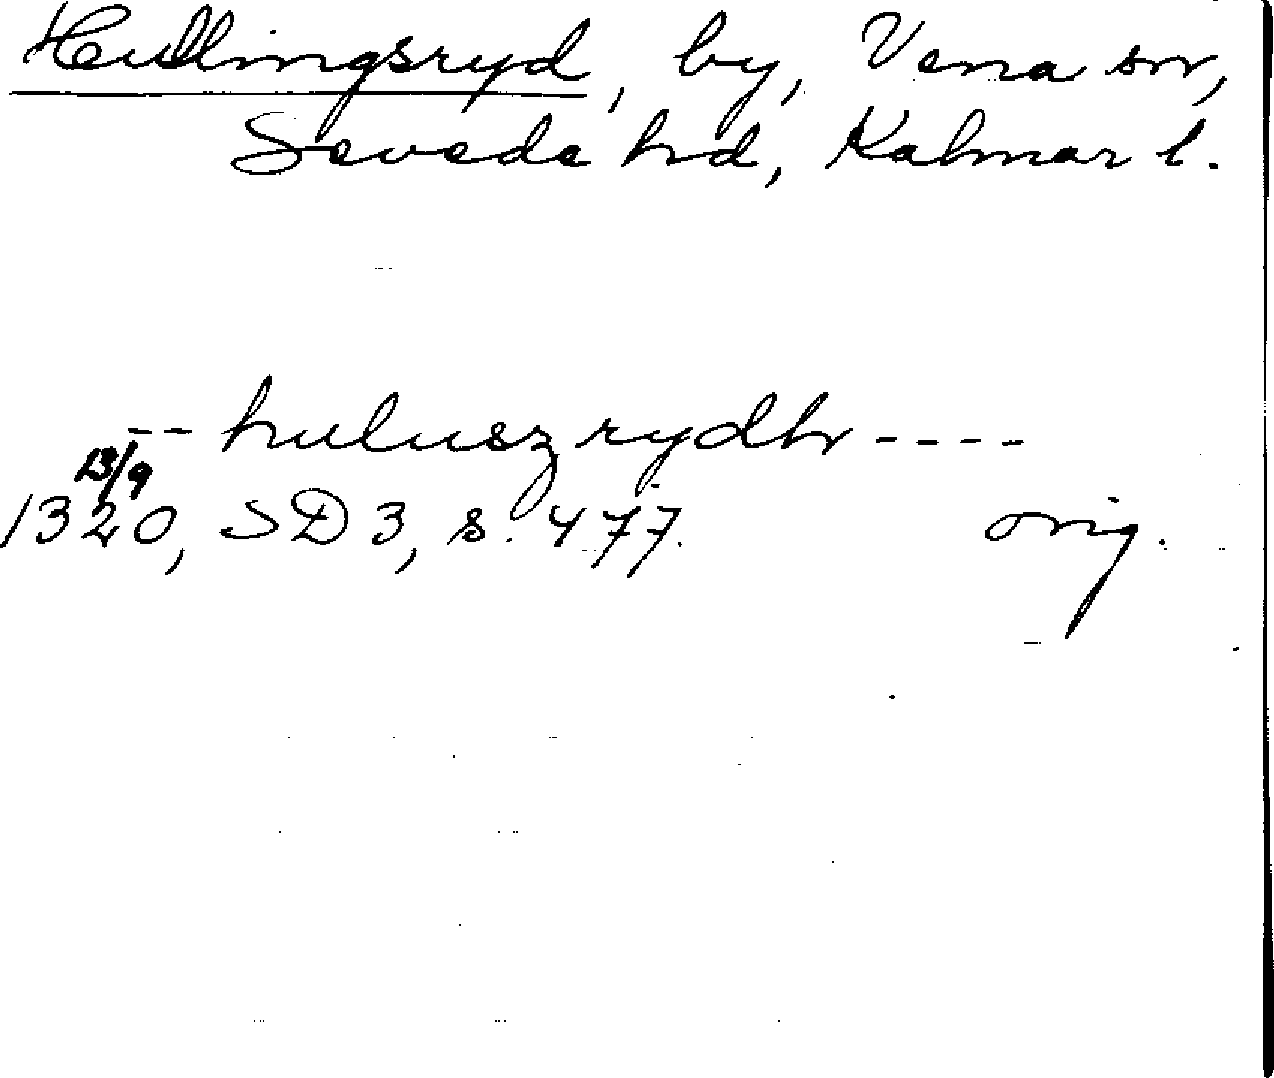 Hullingsryd, by, Vena sn,
Sevede hd, Kalmar l.
-- huluszrydhr ----
13/9
1320, SD 3, s. 477. orig.